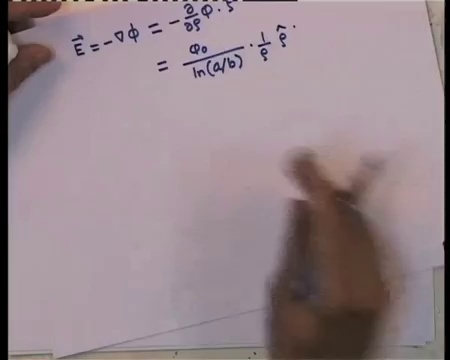 E⃗ = -∇Φ = -∂/∂ρ Φ · ρ̂
= Φ₀/ln(a/b) · 1/ρ ρ̂ .